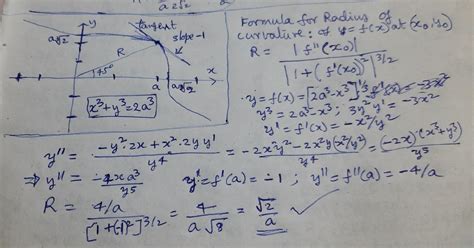 a2√2
y
tangent
slope-1
a∛2
R
45°
a
a∛2
x
x³+y³=2a³
Formula for Radius of
curvature: of y=f(x) at (x₀,y₀)
R = |f''(x₀)| / |1+(f'(x₀))²|^3/2
y=f(x)=[2a³-x³]^1/3
y³=2a³-x³; 3y²y'=-3x²
y'=f'(x)=-x²/y²
y''= (-y²·2x+x²·2yy')/y⁴ = (-2xy²-2x²y(x²/y²))/y⁴ = (-2x)(x³+y³)/y⁵
⇒ y''= -4xa³/y⁵
y'=f'(a)=-1; y''=f''(a)=-4/a
R = (4/a)/[1+(-1)²]^3/2 = 4/(a√8) = √2/a